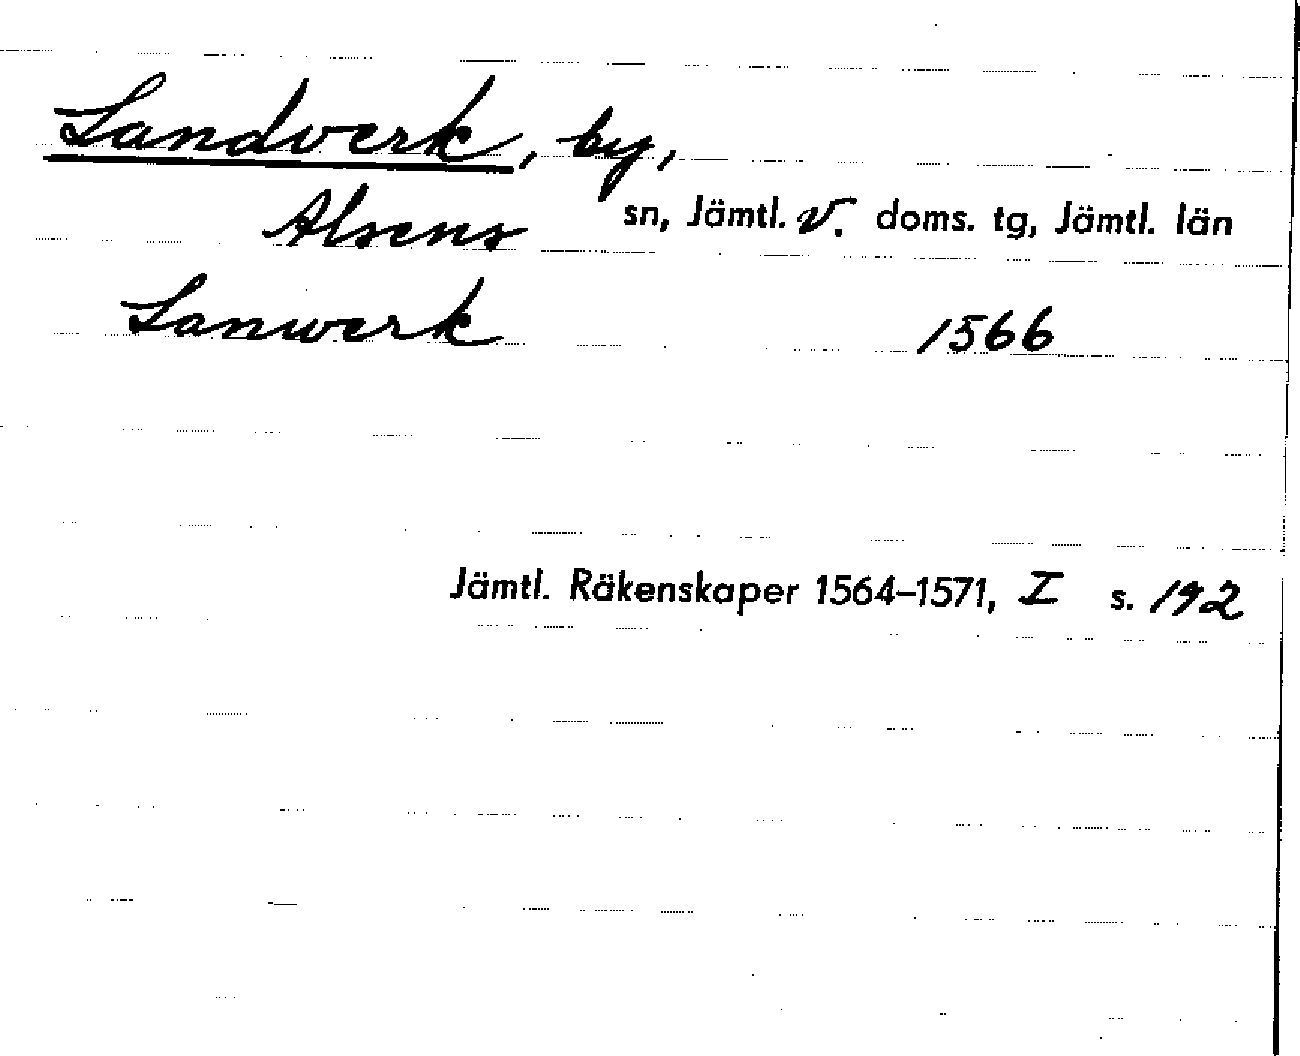 Landverk, by,
Alsens sn, Jämtl. v. doms. tg, Jämtl. län
Lanwerk 1566
Jämtl. Räkenskaper 1564–1571, I s. 192